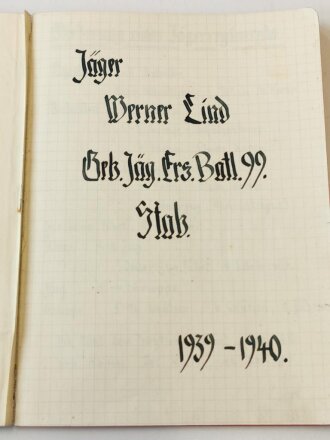 Jäger
Werner Lind
Geb. Jäg. Ers. Batl. 99.
Stab.
1939 - 1940.